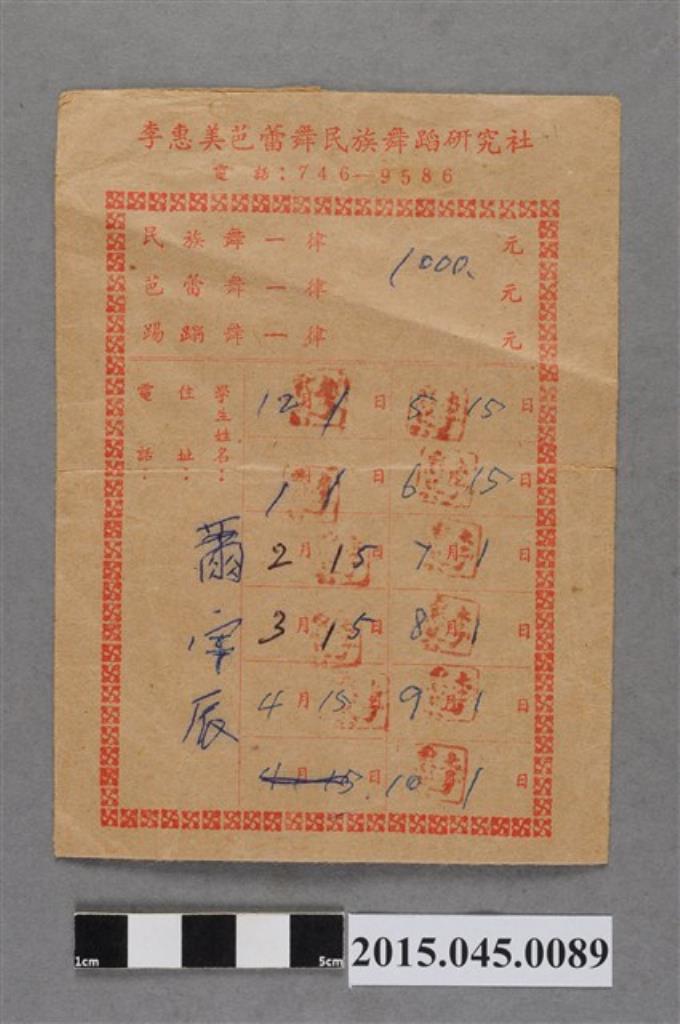 李惠美芭蕾舞民族舞蹈研究社
電 話：746-9586
民族舞一律 1000. 元
芭蕾舞一律 元
踢踏舞一律 元
學生姓名：
住址：
電話：
12月1日 5月15日
1月1日 6月15日
2月15日 7月1日
3月15日 8月1日
4月15日 9月1日
4月15日 10月1日
1cm 5cm
2015.045.0089